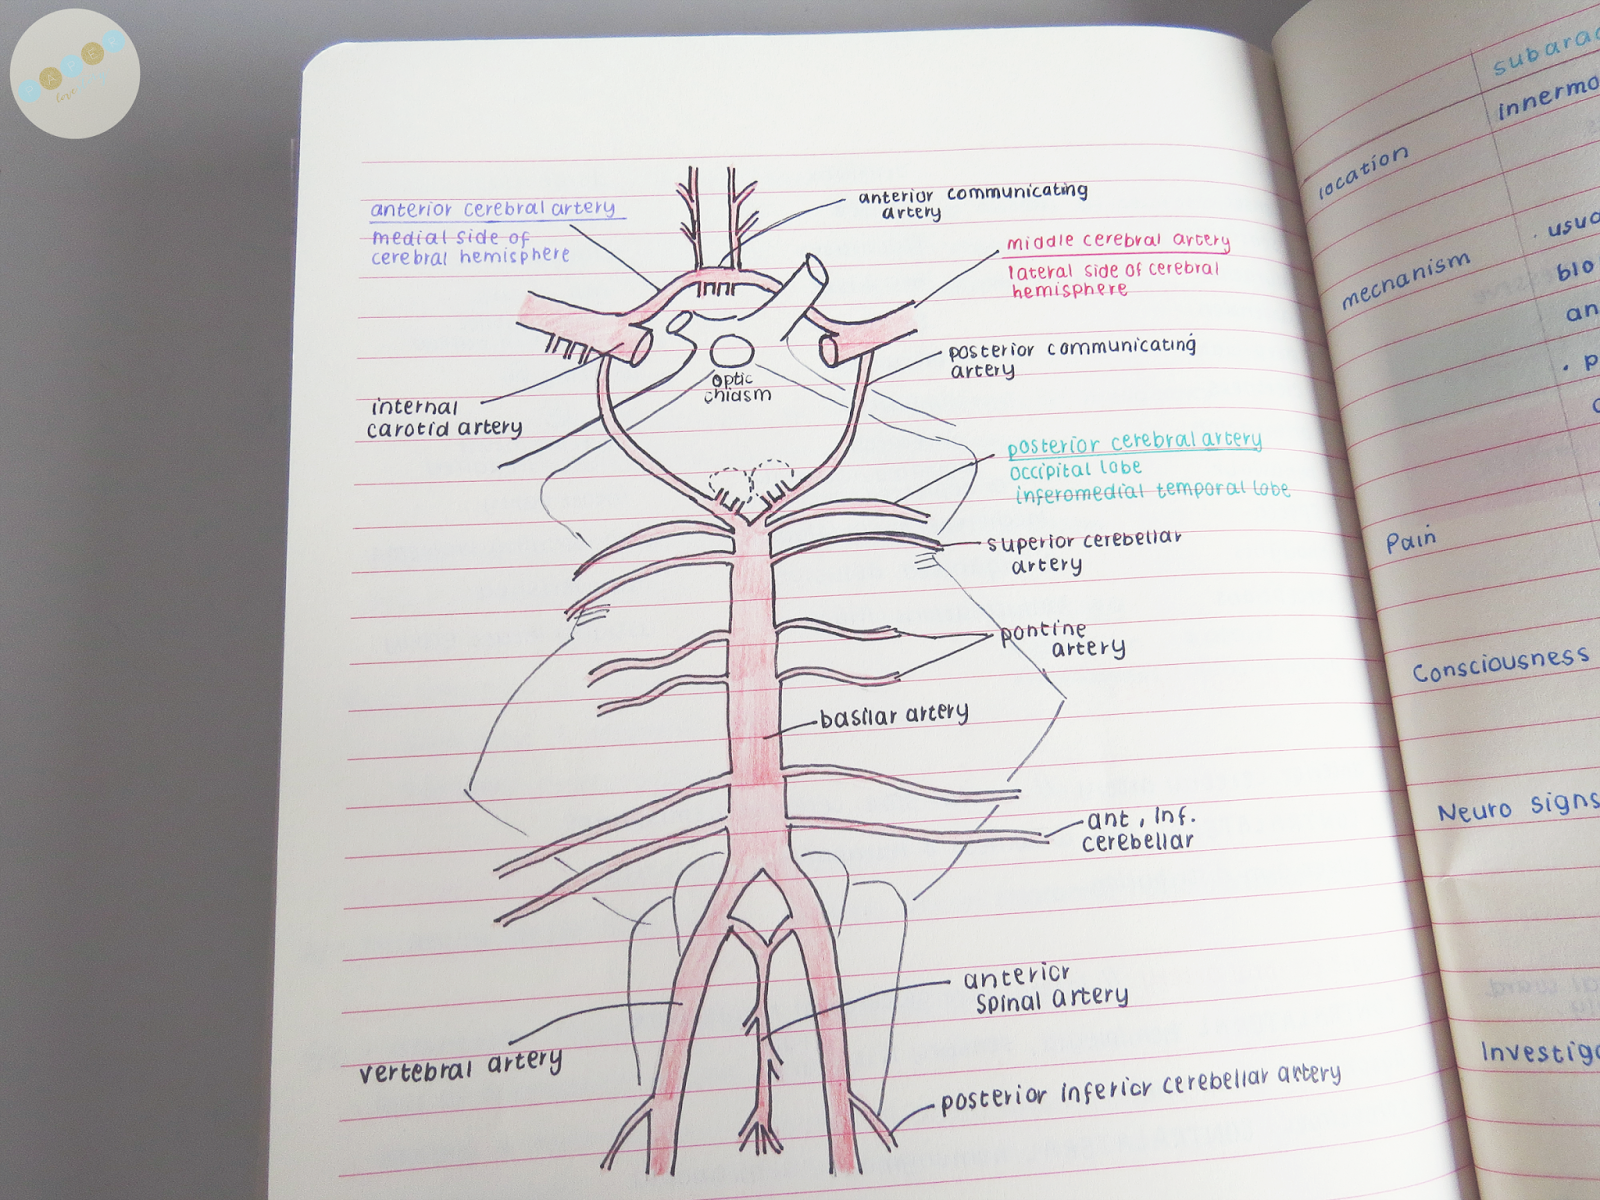 love
anterior cerebral artery
medial side of
cerebral hemisphere
anterior communicating
artery
middle cerebral artery
lateral side of cerebral
hemisphere
posterior communicating
artery
optic
chiasm
internal
carotid artery
posterior cerebral artery
occipital lobe
inferomedial temporal lobe
superior cerebellar
artery
pontine
artery
basilar artery
ant, inf.
cerebellar
anterior
spinal artery
vertebral artery
posterior inferior cerebellar artery
subarac
innermo
location
usua
mechanism
blo
an
Pain
Consciousness
Neuro signs
Investiga